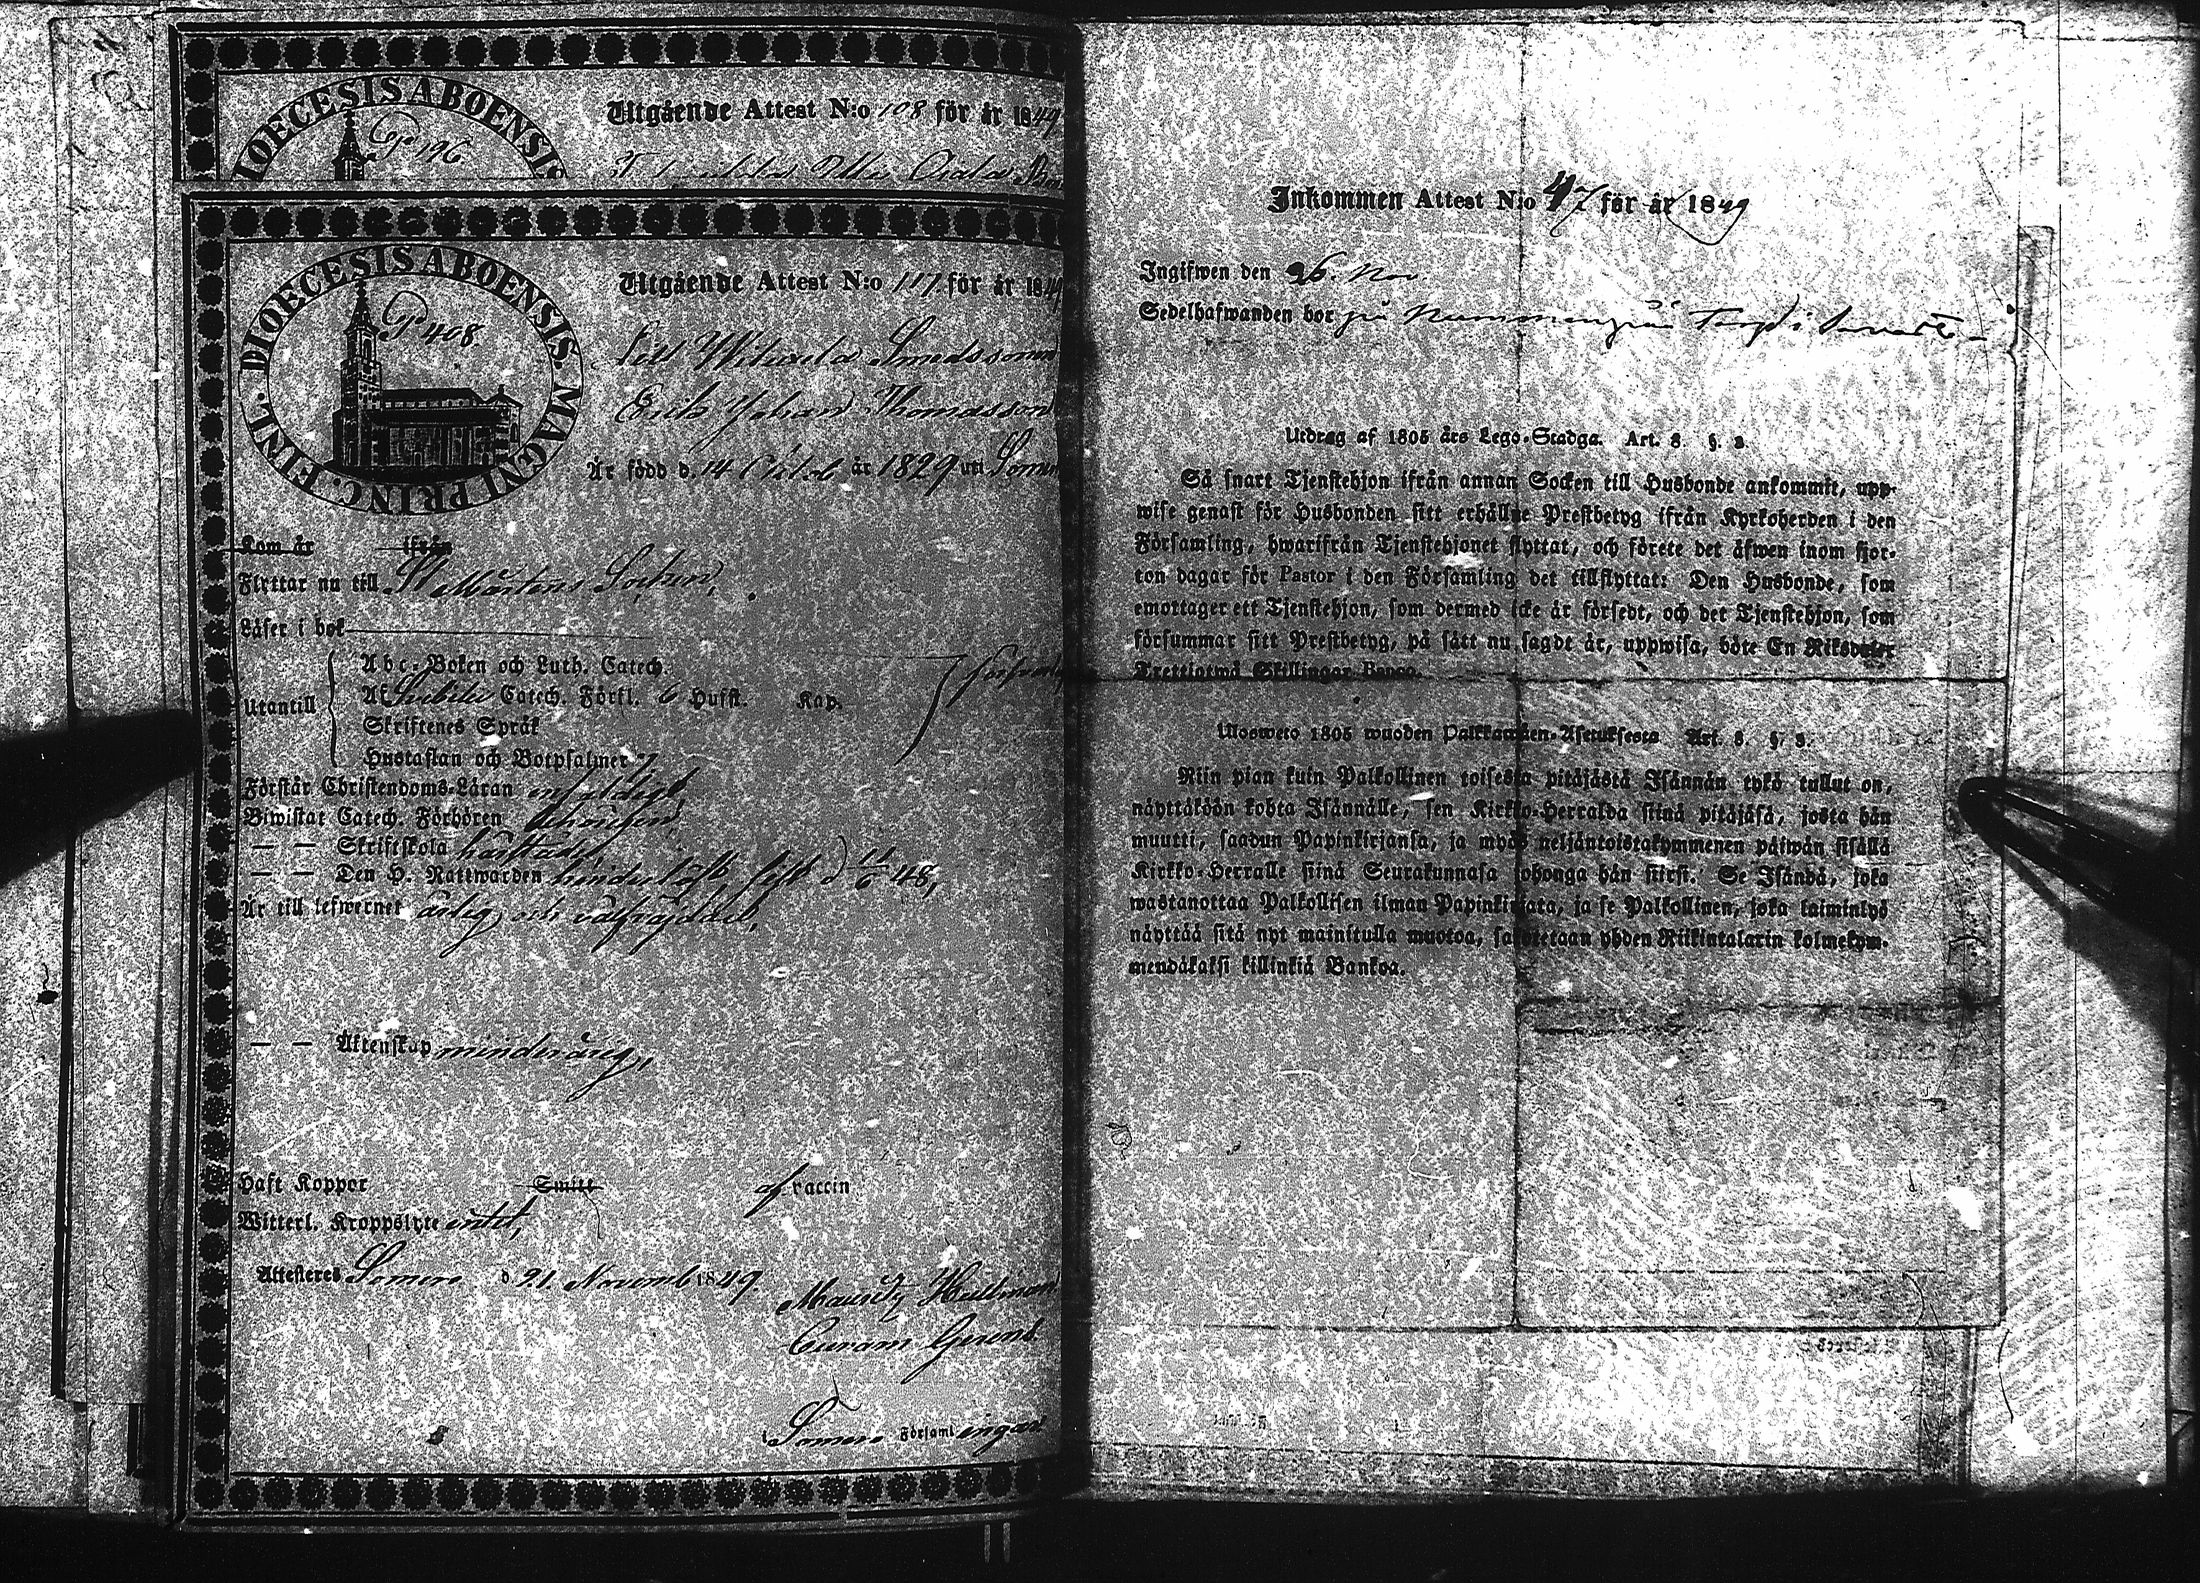 DIOECESIS ABOENSIS
Pag 196
Utgående Attest N:o 108 för år 1849
DIOECESIS ABOENSIS. MAGNI PRINC. FINL.
Pag 408.
Utgående Attest N:o 117 för år 1849
Erik Johan Thomasson
Är född d. 14 Octob år 1829 uti Somer
Kom år ifrån
Flyttar nu till St Mårtens Socken,
Läser i bok
Utantill
Abc-Boken och Luth. Catech.
Af Svebilii Catech. Förkl. 6 Hufst. Kap.
Skriftenes Språk
Hustaflan och Botpsalmer 7
Förstår Christendoms-Läran enfaldigt,
Biwistat Catech. Förhören
— — Skriftskola
— — Den H. Nattwarden sist d 11/6 48,
Är till lefwernet ärlig och välfräjdad,
— — Äktenskap minderårig,
Haft Koppor Smitt af vaccin
Witterl. Kroppslyte intet,
Attesteras Somero d 21 Novemb 1849.
Mauritz Hellman
Curam Gerens
i Somero Församlingar
Inkommen Attest N:o 47 för år 1849
Ingifwen den 26. Nov
Sedelhafwanden bor på Torp i
Utdrag af 1805 års Lego-Stadga. Art. 3. §. 3.
Så snart Tjenstehjon ifrån annan Socken till Husbonde ankommit, upp-
wise genast för Husbonden sitt erhållne Prestbetyg ifrån Kyrkoherden i den
Församling, hwarifrån Tjenstehjonet flyttat, och förete det äfwen inom fjor-
ton dagar för Pastor i den Församling det tillflyttat: Den Husbonde, som
emottager ett Tjenstehjon, som dermed icke är försedt, och det Tjenstehjon, som
försummar sitt Prestbetyg, på sätt nu sagdt är, uppwisa, böte En Riksdaler
Trettiotwå Skillingar Banco.
Uloswеto 1805 wuoden Palkkawäen-Asetuksesta Art. 3. §. 3.
Niin pian kuin Palkollinen toisesta pitäjästä Isännän tykö tullut on,
näyttäköön kohta Isännälle, sen Kirkko-Herralda siinä pitäjäsä, josta hän
muutti, saadun Papinkirjansa, ja myös neljäntoistakymmenen päiwän sisällä
Kirkko-Herralle siinä Seurakunnasa johonga hän siirsi. Se Isändä, joka
wastanottaa Palkollisen ilman Papinkirjata, ja se Palkollinen, joka laiminlyö
näyttää sitä nyt mainitulla muotoa, sakotetaan yhden Riikintalarin kolmekym-
mendäkaksi killinkiä Bankoa.